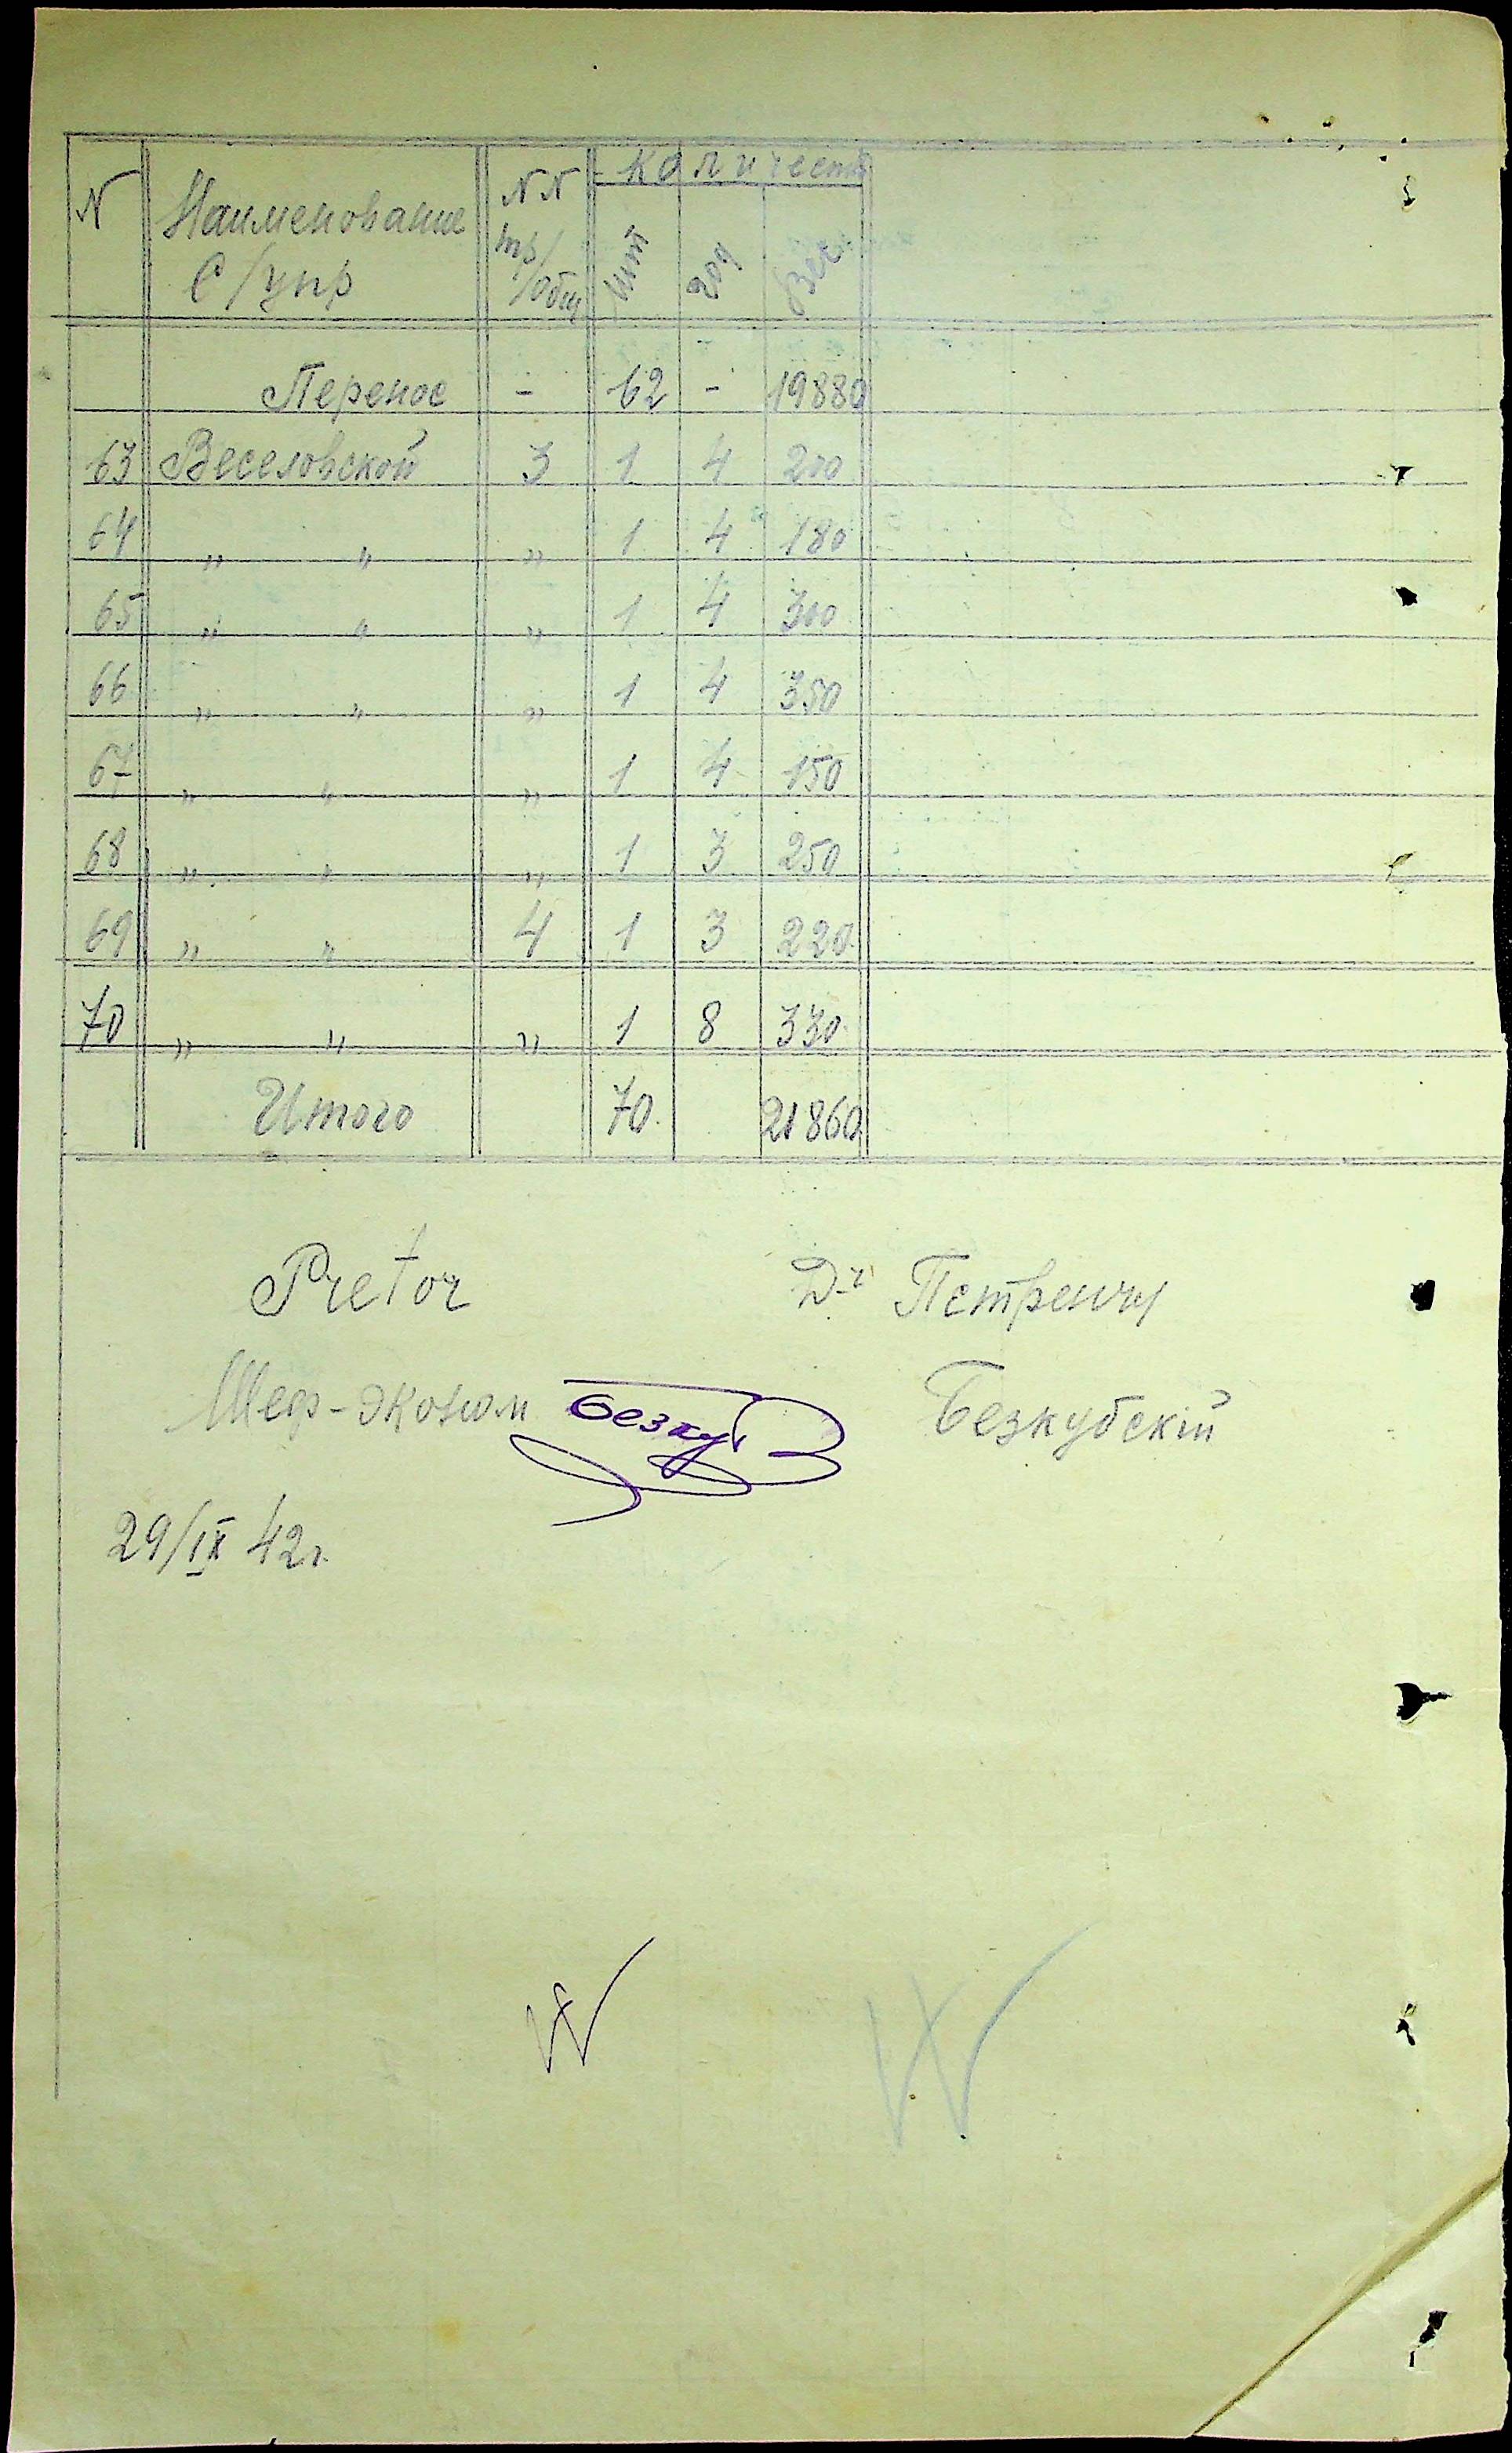 N Наименование С/упр NN тр/общ Количеств шт год Вес
Перенос - 62 - 19880
63 Веселовской 3 1 4 200
64 " " " 1 4 180
65 " " " 1 4 300
66 " " " 1 4 350
67 " " " 1 4 150
68 " " " 1 3 250
69 " " 4 1 3 220
70 " " " 1 8 330
Итого 70 21860
Pretor Д-ч Петренчу
Шеф-эконом Безкуб Безкубскій
29/IX 42г.